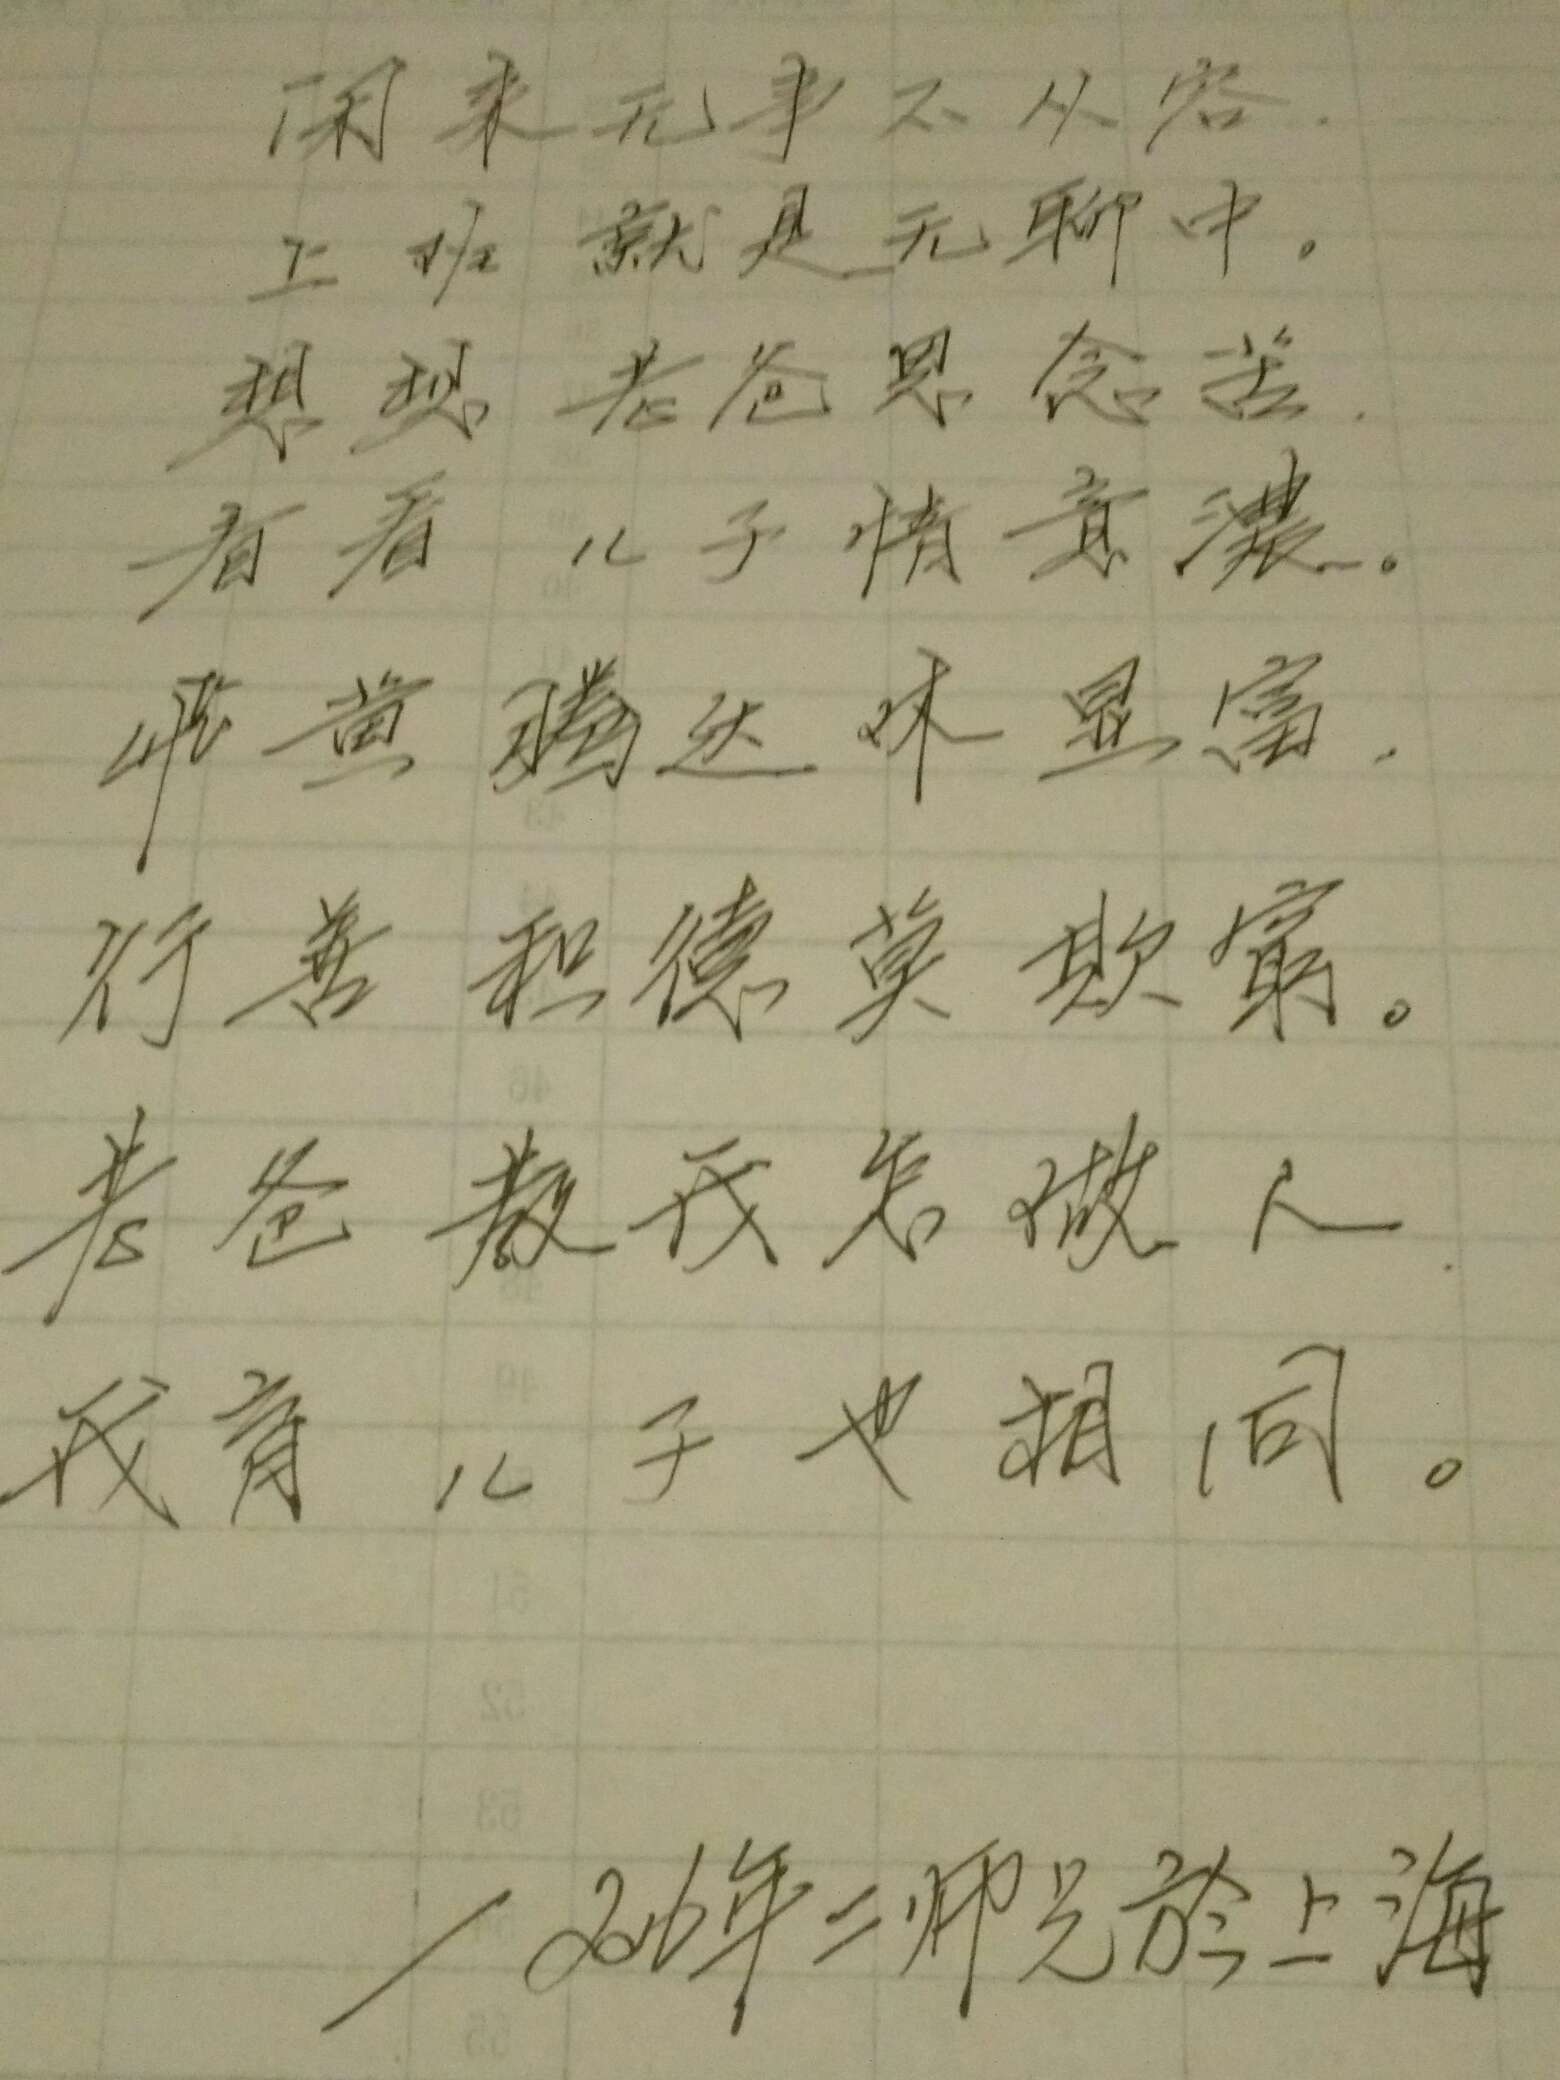 闲来无事不从容.
上班就是无聊中。
想想老爸思念苦.
看看儿子情意濃。
飛黄腾达休显富.
行善积德莫欺窮。
老爸教我怎做人.
我育儿子也相同。
一2016年二师兄於上海